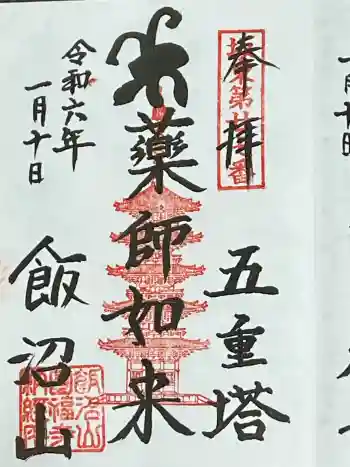 奉拝
五重塔
薬師如来
令和六年
一月十日
飯沼山